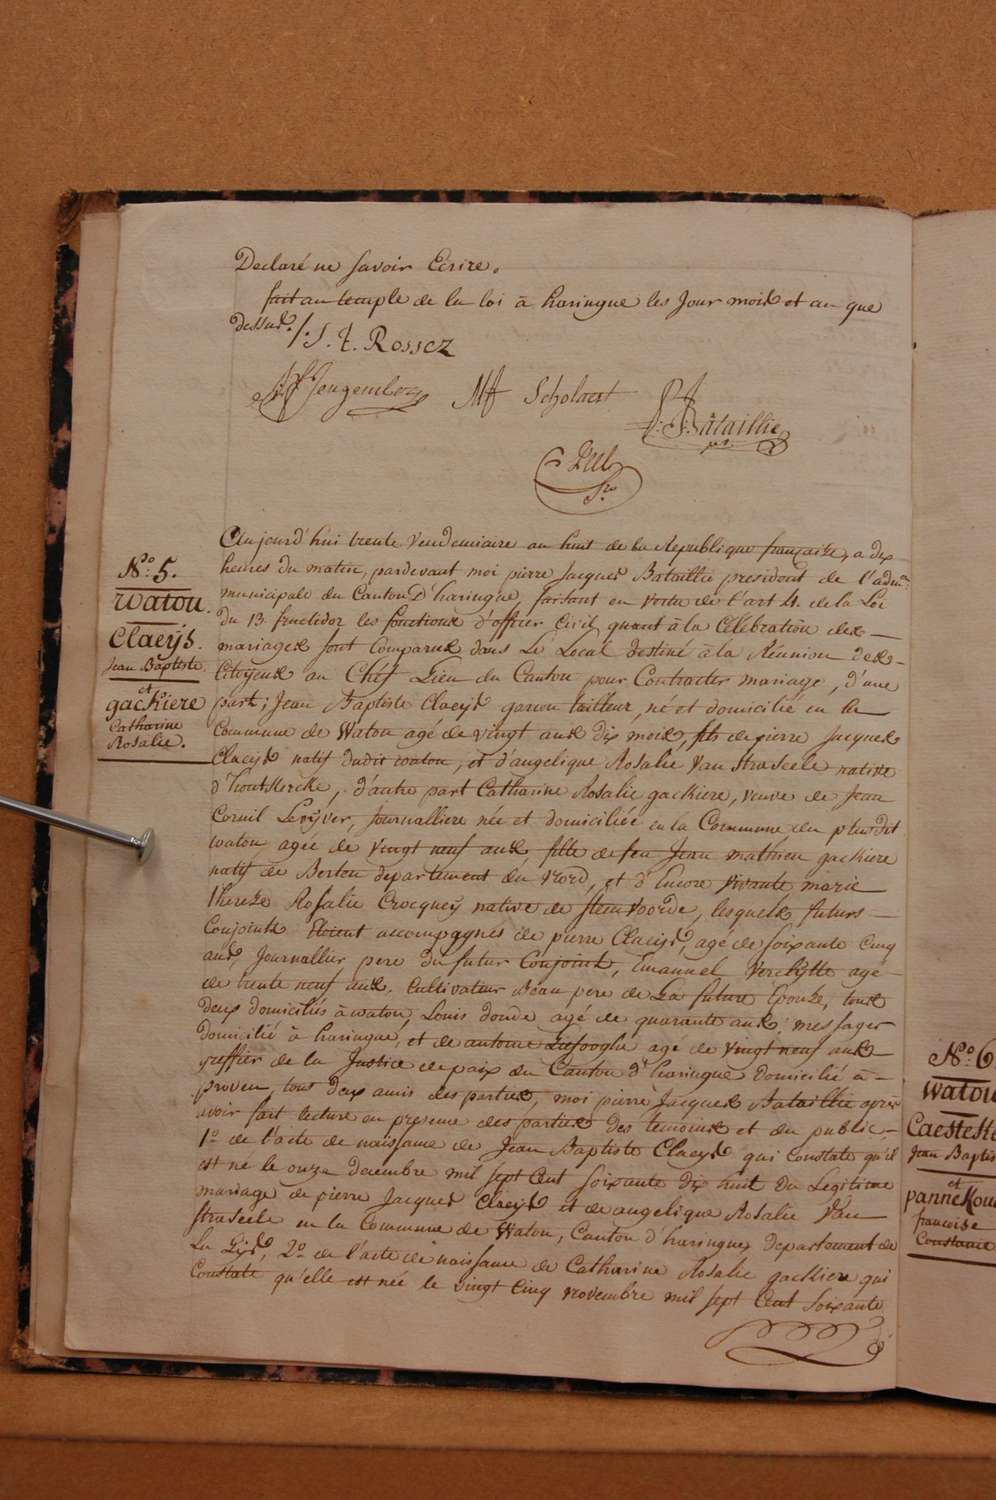 Declaré ne savoir Ecrire.
fait au temple de la loi à haringue les Jour mois et an que
dessus ./. J. t. Rossez
Scholaert
Bataillie
pt
Sre
No. 5.
Watou.
Claeÿs.
Jean Baptiste
et
gackiere
Catharine
Rosalie.
Aujourd'hui trente Vendemiaire an huit de la Republique française, a dix
heures du matin, pardevant moi pierre Jacques Bataillie president de l'adm.on
municipale du Canton D'haringue, faisant en Vertu de l'art 4. de la Loi
du 13 fructidor les fonctions d'officier Civil quant à la Célébration des
mariages sont Comparus dans Le Local destiné à la Réunion des
Citoyens au Chéf Lieu du Canton pour Contracter mariage, d'une
part; Jean Baptiste Claeijs garcon tailleur, né et domicilié en la
Commune de Watou agé de vingt ans dix mois, fils de pierre Jacques
Claeijs natif dudit watou, et d'angelique Rosalie Van Straseele native
d'houtkercke, d'autre part Catharine Rosalie gackiere, veuve de Jean
Cornil Levijver, Journalliere née et domiciliée en la Commune du plus dit
watou agée de vingt neuf ans fille de feu Jean mathieu gackiere
natif de Berten departement du Nord, et d'Encore vivante marie
therese Rosalie Crocqueij native de steenvoorde, lesquels futurs
Conjoints étoient accompagnés de pierre Claeijs, agé de soixante cinq
ans, Journallier pere du futur Conjoint, Emanuel Vercÿtte agé
de trente neuf ans. Cultivateur Beau pere de La future Epouse, tous
deux domiciliés à watou, Louis donde agé de quarante ans, messager
domicilié à haringue, et de antoine Liefooghe agé de vingt neuf ans
greffier de la Justice de paix du Canton d'haringue Domicilié à
proven, tous deux amis des parties, moi pierre Jacques Bataillie après
avoir fait lecture en presence des parties des temoins et du public,
1o. de l'acte de naissance de Jean Baptiste Claeijs qui Constate qu'il
est né le onze decembre mil sept Cent soixante dix huit Du Legitime
mariage de pierre Jacques Claeijs et de angelique Rosalie Van
straseele en la Commune de Watou, Canton d'haringue, departement de
La Lijs, 2o. de l'acte de naissance de Catharine Rosalie gackiere qui
Constate qu'elle est née le vingt Cinq novembre mil sept Cent soixante
No. 6
Watou
Caesteke
Jean Baptis
et
panneKou
francoise
Constance